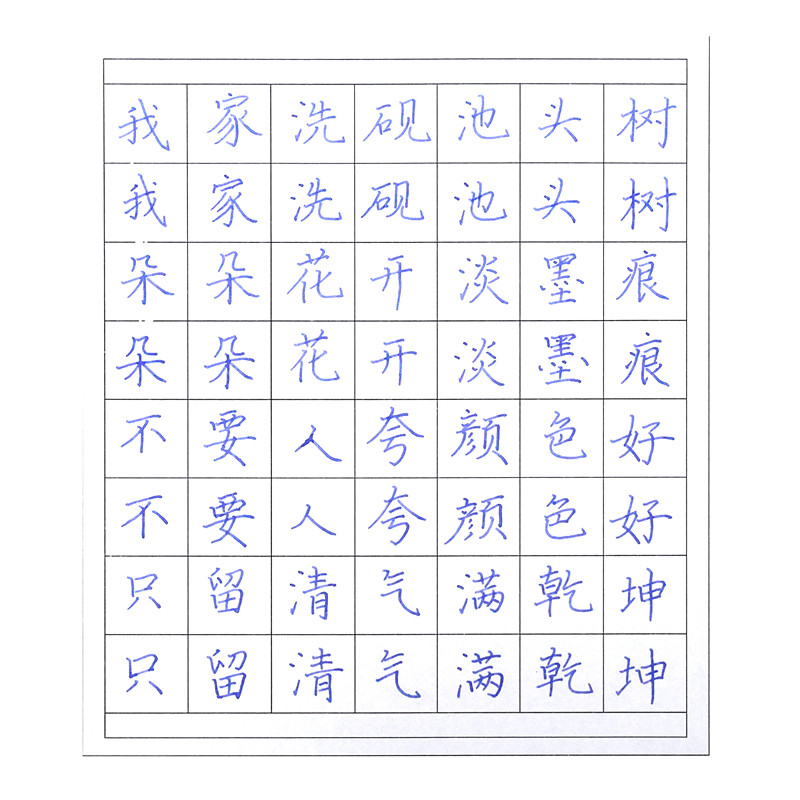 我家洗砚池头树
我家洗砚池头树
朵朵花开淡墨痕
朵朵花开淡墨痕
不要人夸颜色好
不要人夸颜色好
只留清气满乾坤
只留清气满乾坤